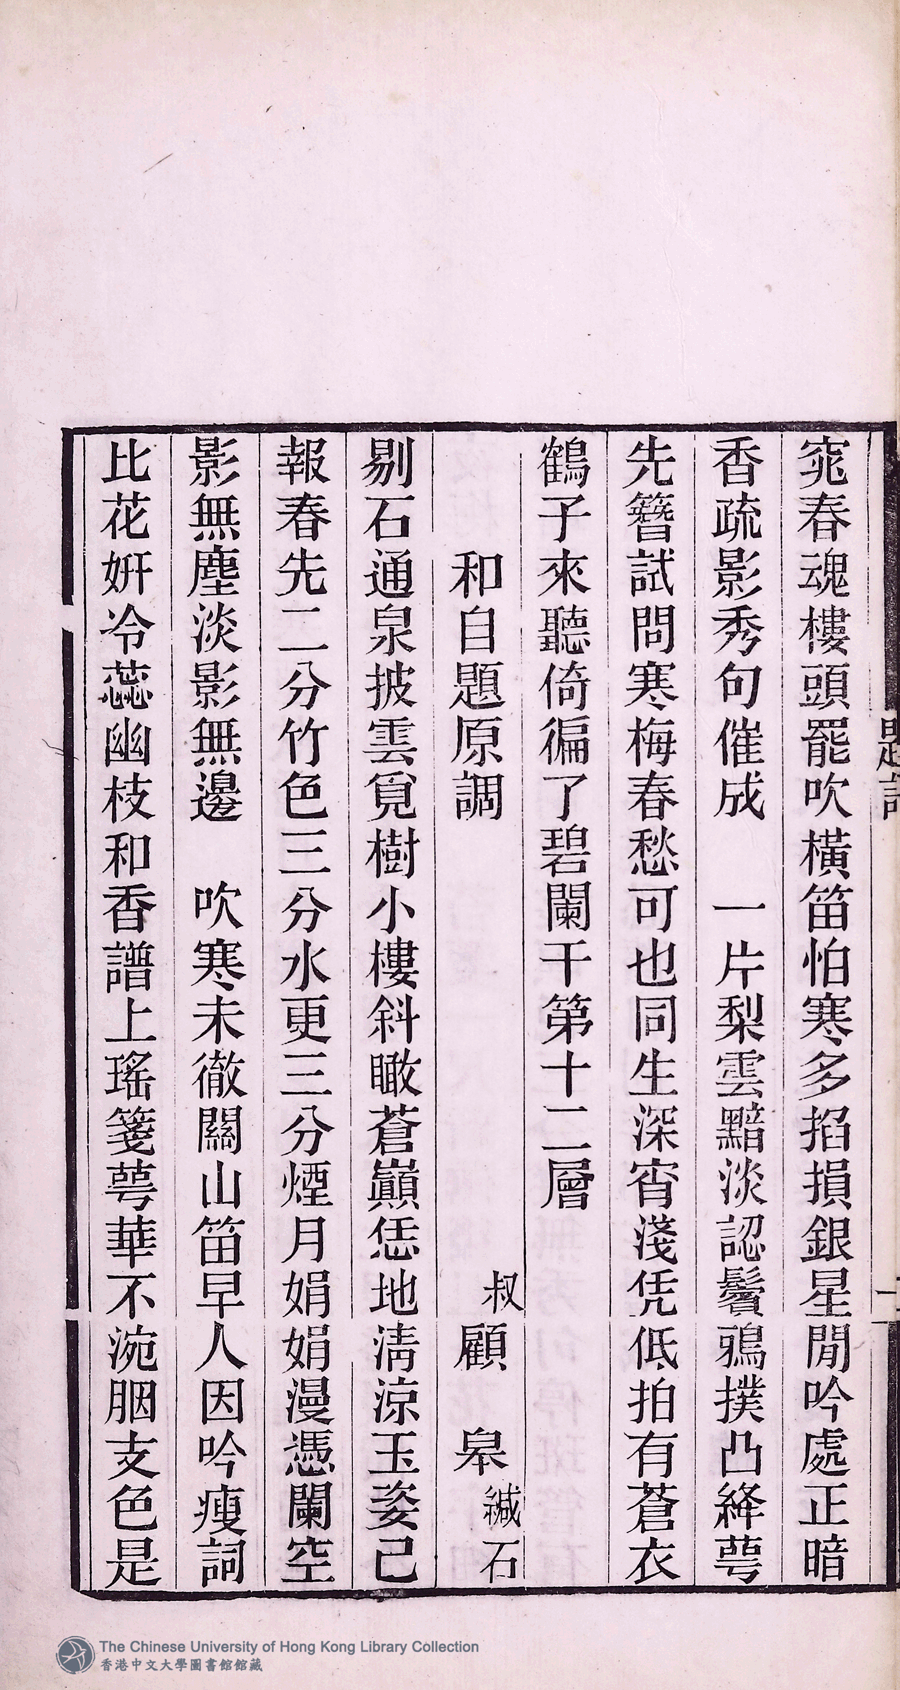 窕春魂樓頭罷吹橫笛怕寒多掐損銀星閒吟處正暗
香疏影秀句催成　一片梨雲黯淡認鬢鴉撲凸絳萼
先簪試問寒梅春愁可也同生深宵淺凭低拍有蒼衣
鶴子來聽倚徧了碧闌干第十二層
和自題原調　叔顧　皋緘石
剔石通泉披雲覓樹小樓斜瞰蒼巔恁地淸涼玉姿已
報春先二分竹色三分水更三分煙月娟娟漫憑闌空
影無塵淡影無邊　吹寒未徹關山笛早人因吟瘦詞
比花妍冷蕊幽枝和香譜上瑤箋萼華不涴胭支色是
The Chinese University of Hong Kong Library Collection
香港中文大學圖書館館藏